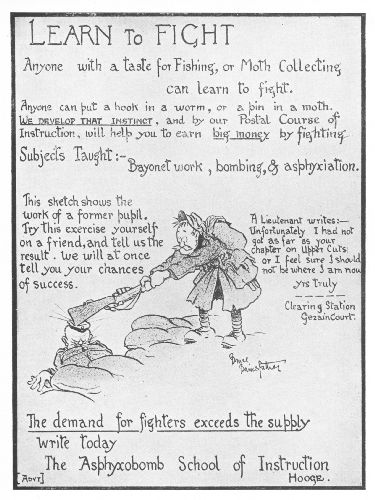 LEARN TO FIGHT
Anyone with a taste for Fishing, or Moth Collecting
can learn to fight.
Anyone can put a hook in a worm, or a pin in a moth.
WE DEVELOP THAT INSTINCT, and by our Postal Course of
Instruction, will help you to earn big money by fighting
Subjects Taught:-
Bayonet work, bombing, & asphyxiation.
This sketch shows the
work of a former pupil.
Try this exercise yourself
on a friend, and tell us the
result. We will at once
tell you your chances
of success.
A Lieutenant writes:-
Unfortunately I had not
got as far as your
chapter on Upper Cuts,
or I feel sure I should
not be where I am now
yrs truly
Clearing Station
GezainCourt.
Bruce
Bairnsfather
The demand for fighters exceeds the supply
write today
The Asphyxobomb School of Instruction
HOOGE.
[ADVT]